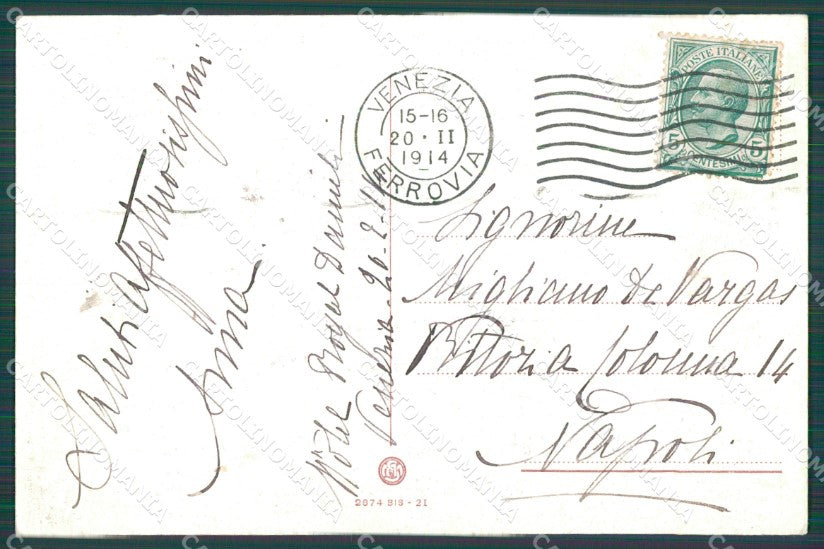 Saluti affettuosissimi
Anna
Hôtel Royal Danieli
Venezia - 20-2-14
VENEZIA
15-16
20 · II
1914
FERROVIA
POSTE ITALIANE
5 CENTESIMI 5
Signorine
Migliano de Vargas
Vittoria Colonna 14
Napoli
2874 BIS - 21
CARTOLINOMANIA